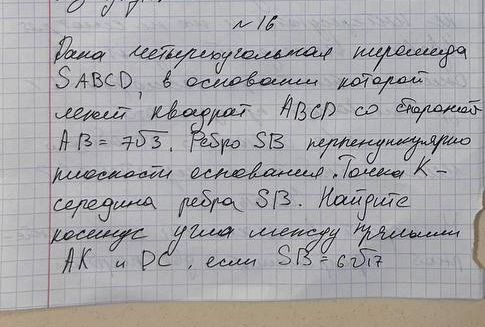 № 16
Дана четырехугольная пирамида
SABCD, в основании которой
лежит квадрат ABCD со стороной
AB = 7√3. Ребро SB перпендикулярно
плоскости основания. Точка K –
середина ребра SB. Найдите
косинус угла между прямыми
AK и DC, если SB = 6√17